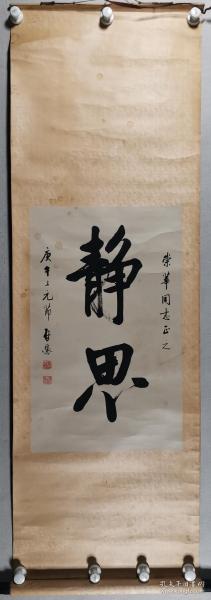 荣华同志正之
静思
庚午上元节
孔夫子旧书网